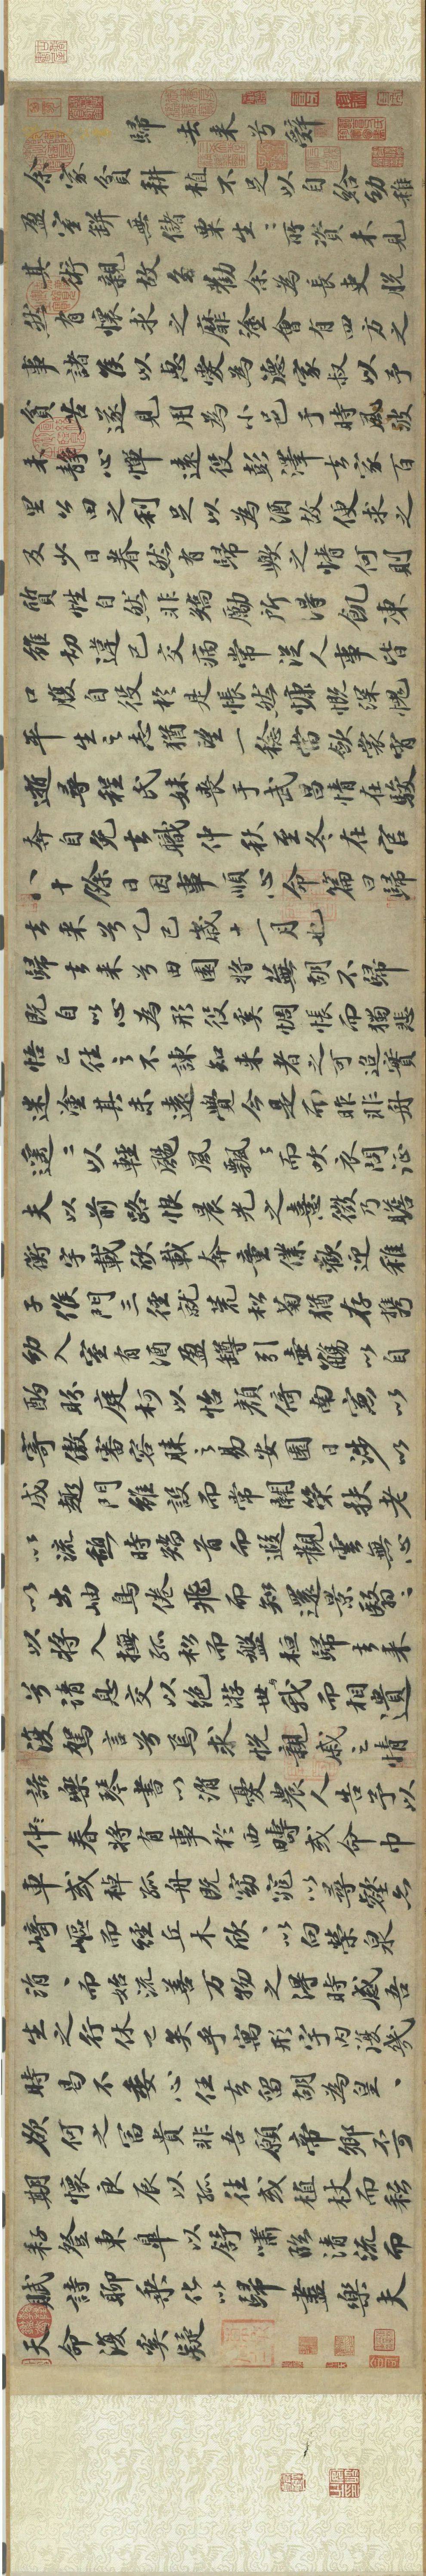 歸去來兮辭
余家貧耕植不足以自給幼稚
盈室缾無儲粟生〻所資未見
其術親故多勸余為長吏脫
然有懷求之靡塗會有四方之
事諸侯以惠愛為德家叔以予
貧苦遂見用為小邑于時風波
未靜心憚遠役彭澤去家百
里公田之利足以為酒故便求之
及少日眷然有歸歟之情何則
質性自然非矯勵所得飢凍
雖切違己交病常從人事皆
口腹自役於是悵然慷慨深愧
平生之志猶望一稔當斂裳宵
逝尋程氏妹喪于武昌情在駿
奔自免去職仲秋至冬在官
八十餘日因事順心命篇曰歸
去來兮乙巳歲十一月也
歸去來兮田園將蕪胡不歸
既自以心為形役奚惆悵而獨悲
悟已往之不諫知來者之可追實
迷塗其未遠覺今是而昨非舟
遙〻以輕颺風飄〻而吹衣問征
夫以前路恨晨光之熹微乃瞻
衡宇載欣載奔童僕歡迎稚
子候門三徑就荒松菊猶存攜
幼入室有酒盈罇引壺觴以自
酌眄庭柯以怡顏倚南窗以
寄傲審容膝之易安園日涉以
成趣門雖設而常關策扶老
以流憩時矯首而遐觀雲無心
以出岫鳥倦飛而知還景翳〻
以將入撫孤松而盤桓歸去來
兮請息交以絕游世我而相遺
復駕言兮焉求悅親戚之情
話樂琴書以消憂農人告予以
仲春將有事於西疇或命巾
車或棹孤舟既窈窕以尋壑亦
崎嶇而經丘木欣〻以向榮泉
涓〻而始流善萬物之得時感吾
生之行休已矣乎寓形宇內復幾
時曷不委心任去留胡為皇〻
欲何之富貴非吾願帝鄉不可
期懷良辰以孤往或植杖而耘
耔登東皋以舒嘯臨清流而
賦詩聊乘化以歸盡樂夫
天命復奚疑